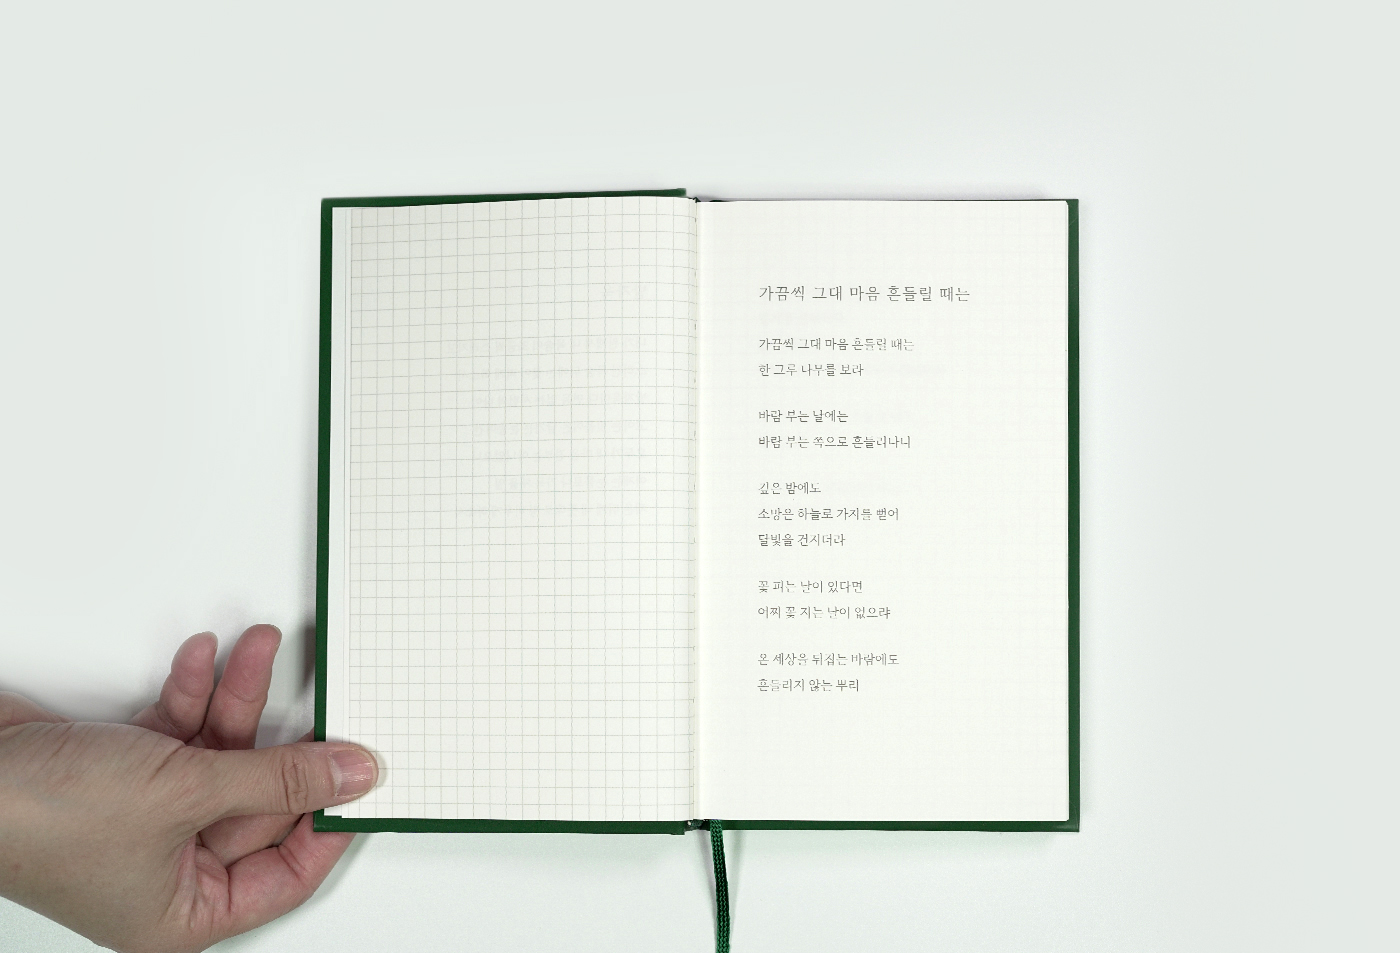 가끔씩 그대 마음 흔들릴 때는
가끔씩 그대 마음 흔들릴 때는
한 그루 나무를 보라
바람 부는 날에는
바람 부는 쪽으로 흔들리나니
깊은 밤에도
소망은 하늘로 가지를 뻗어
달빛을 건지더라
꽃 피는 날이 있다면
어찌 꽃 지는 날이 없으랴
온 세상을 뒤집는 바람에도
흔들리지 않는 뿌리